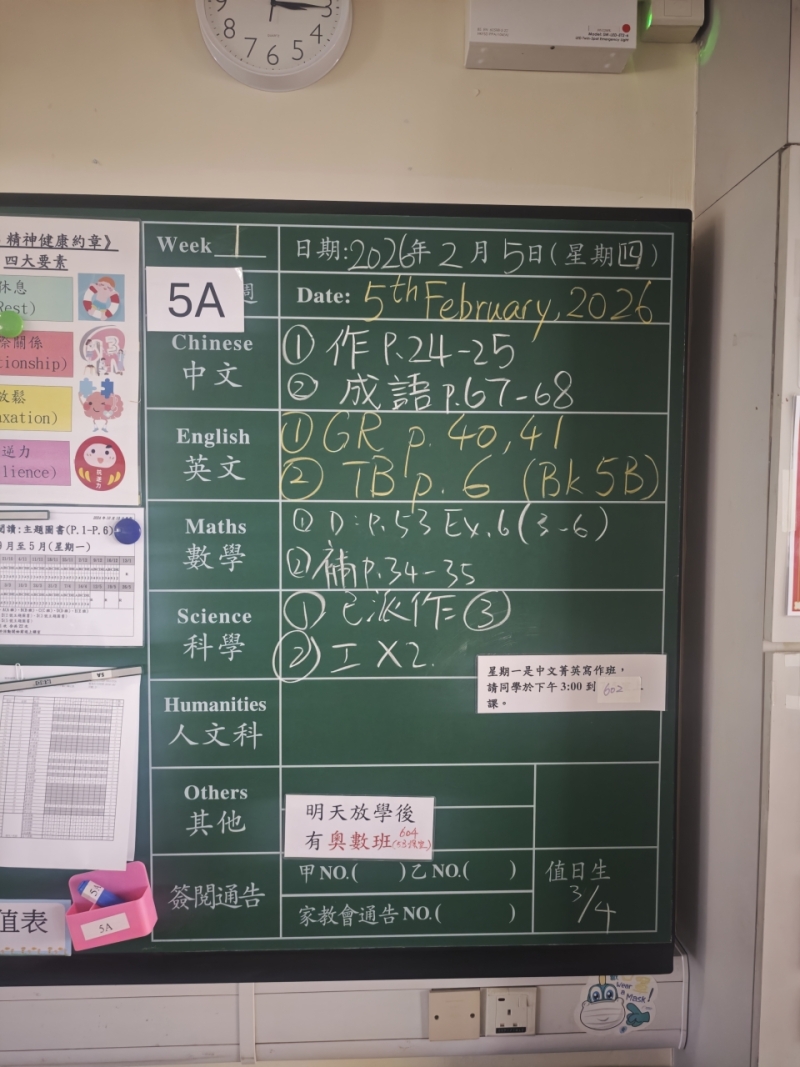 9
3
8
4
7
6
5
精神健康約章》
四大要素
休息
Rest)
關係
tionship)
放鬆
axation)
逆力
lience)
閱讀:主題圖書(P.1-P.6)
月至5月(星期一)
值表
5A
5A
Week 1
日期:2026年2月5日(星期四)
5A
週
Date: 5th February, 2026
Chinese
中文
① 作 P.24-25
② 成語 p.67-68
English
英文
① GR p. 40, 41
② TB p. 6 (Bk 5B)
Maths
數學
① D: P.53 Ex.6 (3-6)
② 補 P.34-35
Science
科學
① 已派作=③
② 工 X2.
星期一是中文菁英寫作班,
請同學於下午 3:00 到 602
課。
Humanities
人文科
Others
其他
明天放學後
有奧數班
604
簽閱通告
甲NO.( )乙NO.( )
家教會通告 NO.( )
值日生
3/4
Wear
a
Mask!